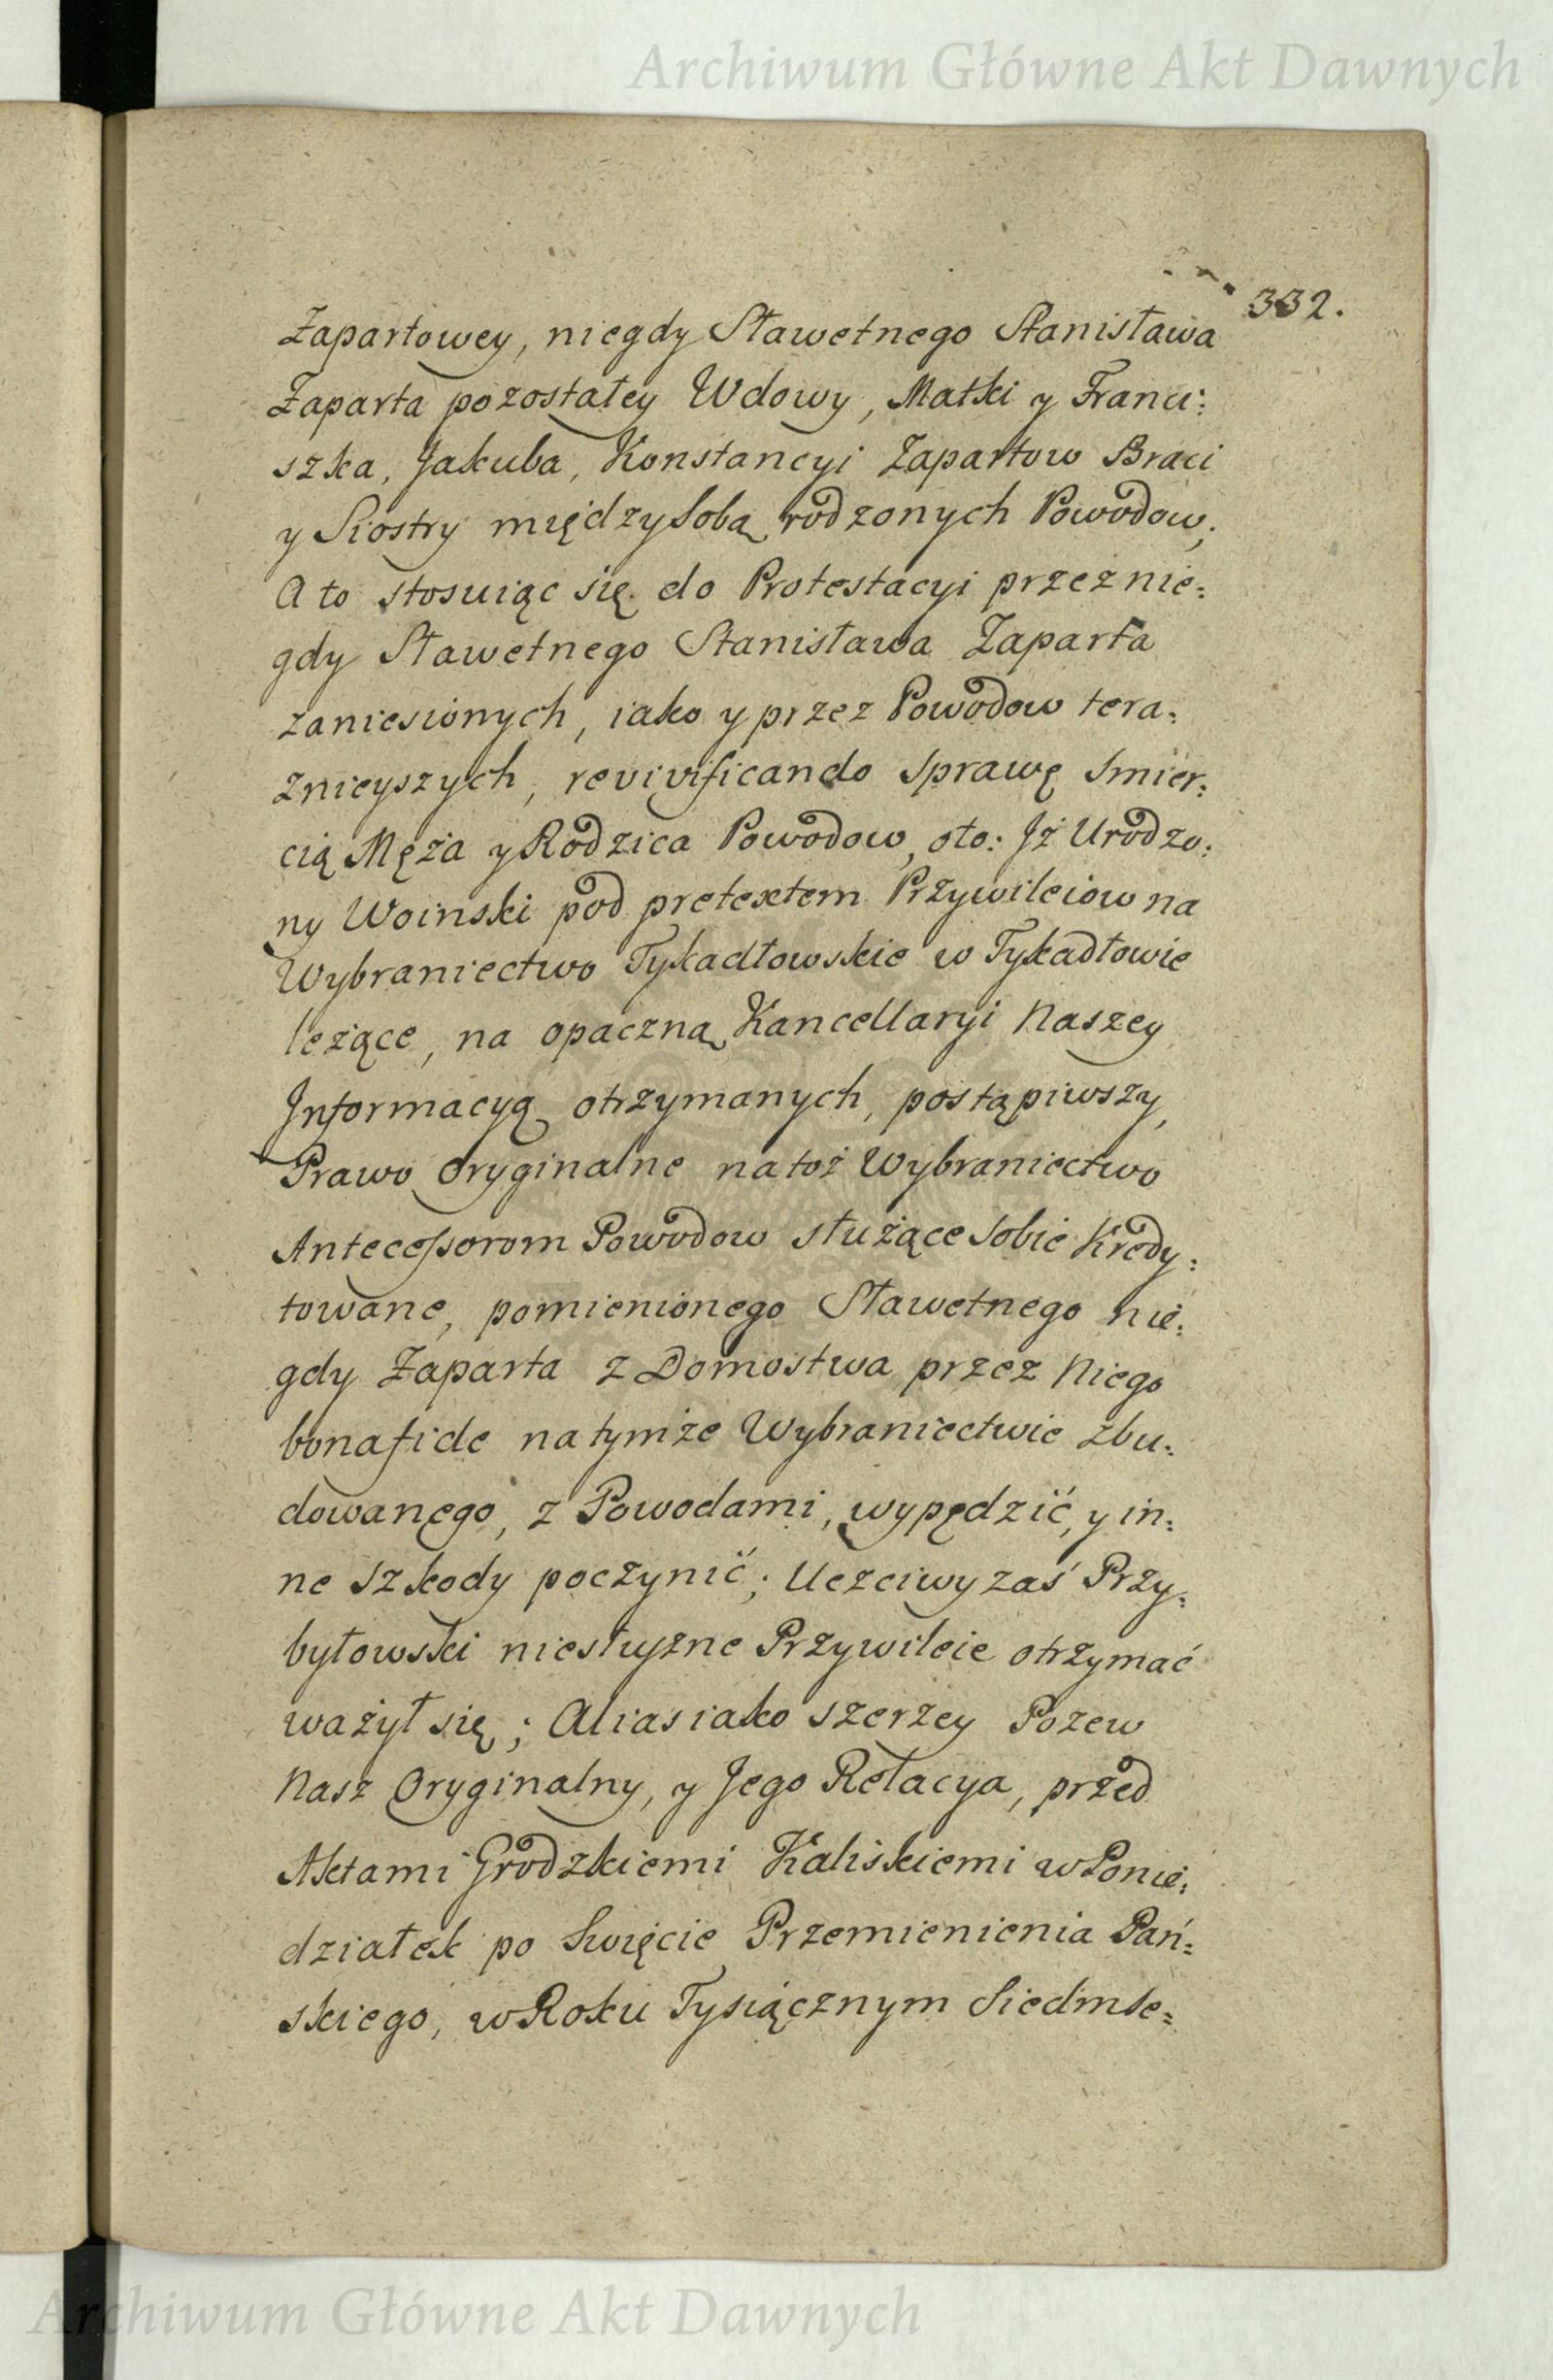 Archiwum Główne Akt Dawnych
332.
Zapartowey, niegdy Sławetnego Stanisława
Zaparta pozostałey Wdowy, Matki y Franci:
szka, Jakuba, Konstancyi Zapartow Braci
y Siostry między Sobą rodzonych Powodow;
A to stosuiąc się do Protestacyi przez nie:
gdy Sławetnego Stanisława Zaparta
zaniesionych, iako y przez Powodow tera:
znieyszych, revivificando sprawę smier:
cią Męża y Rodzica Powodow, oto: Jż Urodzo:
ny Woinski pod pretextem Przywileiow na
Wybraniectwo Tykadłowskie w Tykadłowie
leżące, na opaczną Kancellaryi Naszey
Jnformacyą otrzymanych, postąpiwszy,
Prawo Oryginalne na toż Wybraniectwo
Antecessorom Powodow służące Sobie Kredy:
towane, pomienionego Sławetnego nie:
gdy Zaparta z Domostwa przez Niego
bonafide na tymże Wybraniectwie zbu:
dowanego, z Powodami, wypędzić, y in:
ne szkody poczynić; Uczciwy zaś Przy:
byłowski niesłuzne Przywileie otrzymać
ważył się; Alias iako szerzey Pozew
Nasz Oryginalny, y Jego Relacya, przed
Aktami Grodzkiemi Kaliskiemi w Ponie:
działek po Swięcie Przemienienia Pań:
skiego, w Roku Tysiącznym Siedmse:
Archiwum Główne Akt Dawnych